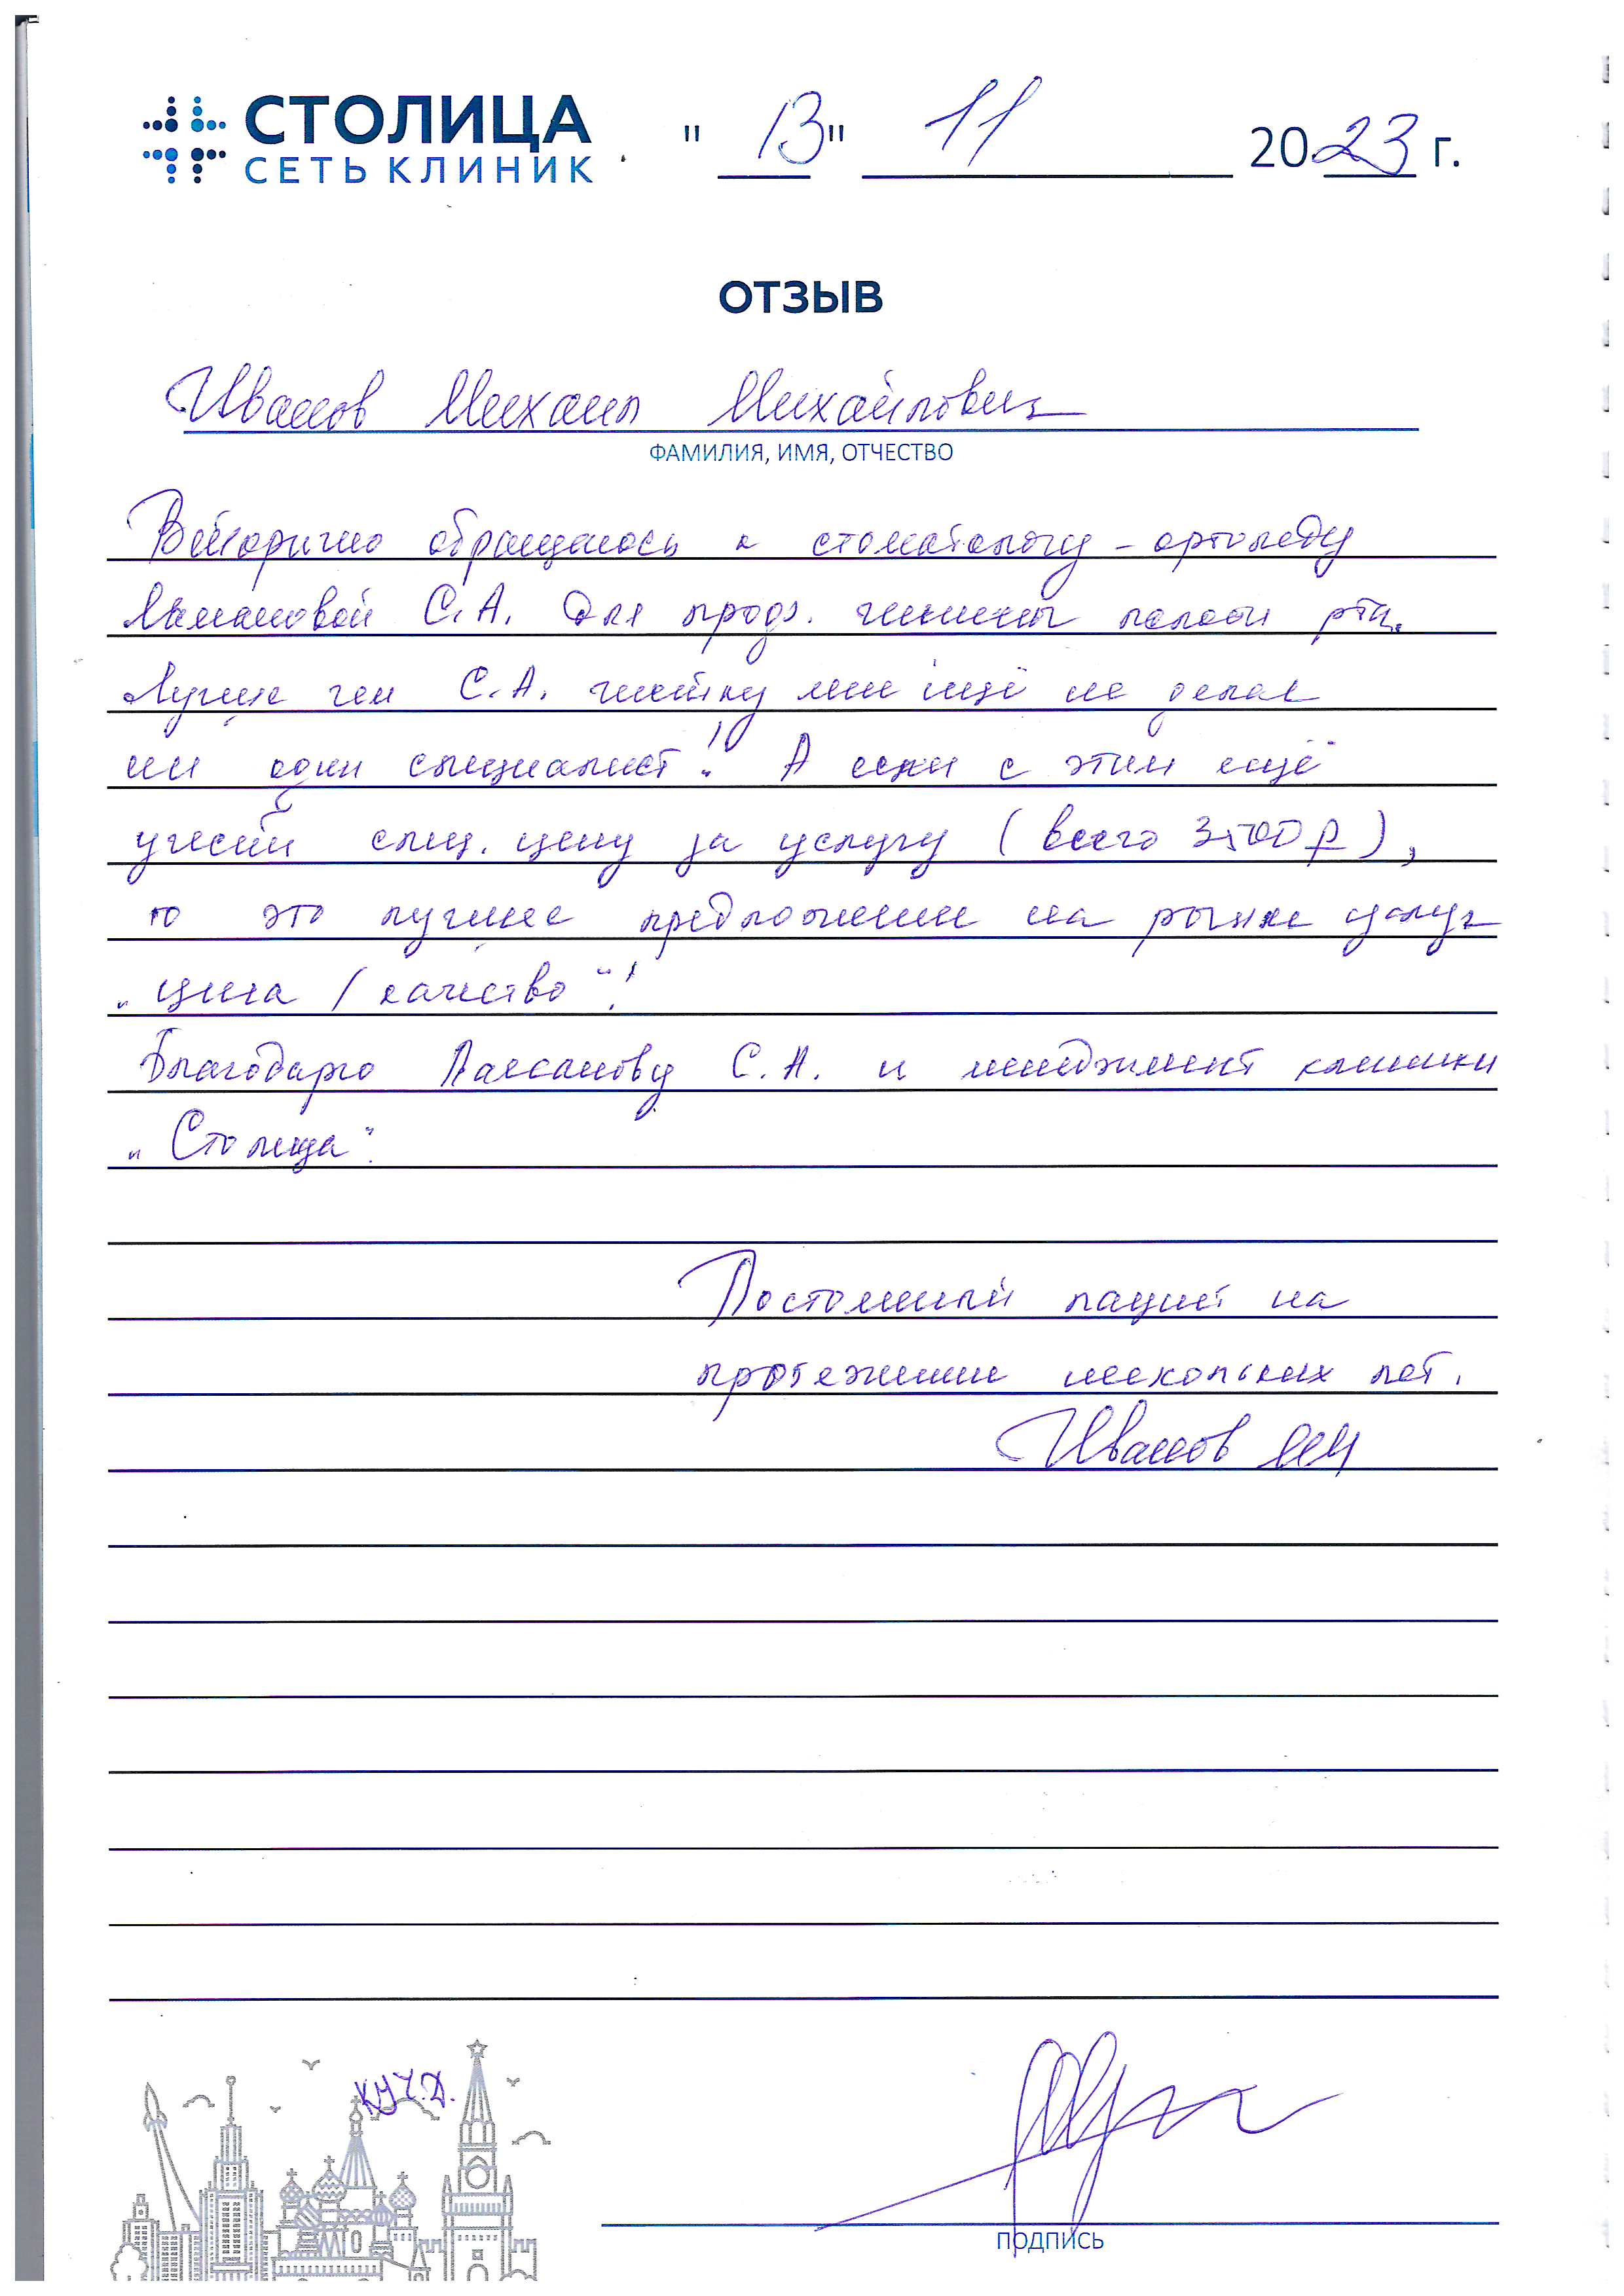 СТОЛИЦА
СЕТЬ КЛИНИК
" 13 " 11 2023 г.
ОТЗЫВ
Иванов Михаил Михайлович
ФАМИЛИЯ, ИМЯ, ОТЧЕСТВО
Вторично обращаюсь к стоматологу - ортопеду
С.А. для проф. чистки полости рта.
Лучше чем С.А. чистку мне ещё не делал
ни один специалист! А если с этим ещё
учесть спец. цену за услугу (всего 3500 ₽),
то это лучшее предложение на рынке услуг
„цена / качество"!
Благодарю С.А. и менеджмент клиники
„Столица".
Постоянный пациент на
протяжении нескольких лет.
Иванов ММ
КУЧ.Д.
ПОДПИСЬ